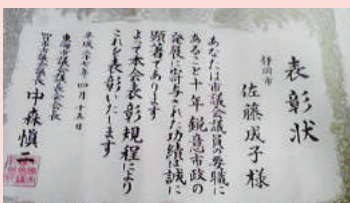 表彰状
静岡市
佐藤成子様
あなたは市議会議員の要職に
あること十年鋭意市政の
発展に寄与された功績は誠に
顕著であります
よって本会表彰規程により
これを表彰いたします
平成二十七年四月十五日
東海市議会議長会会長
市議会議長
中森慎二